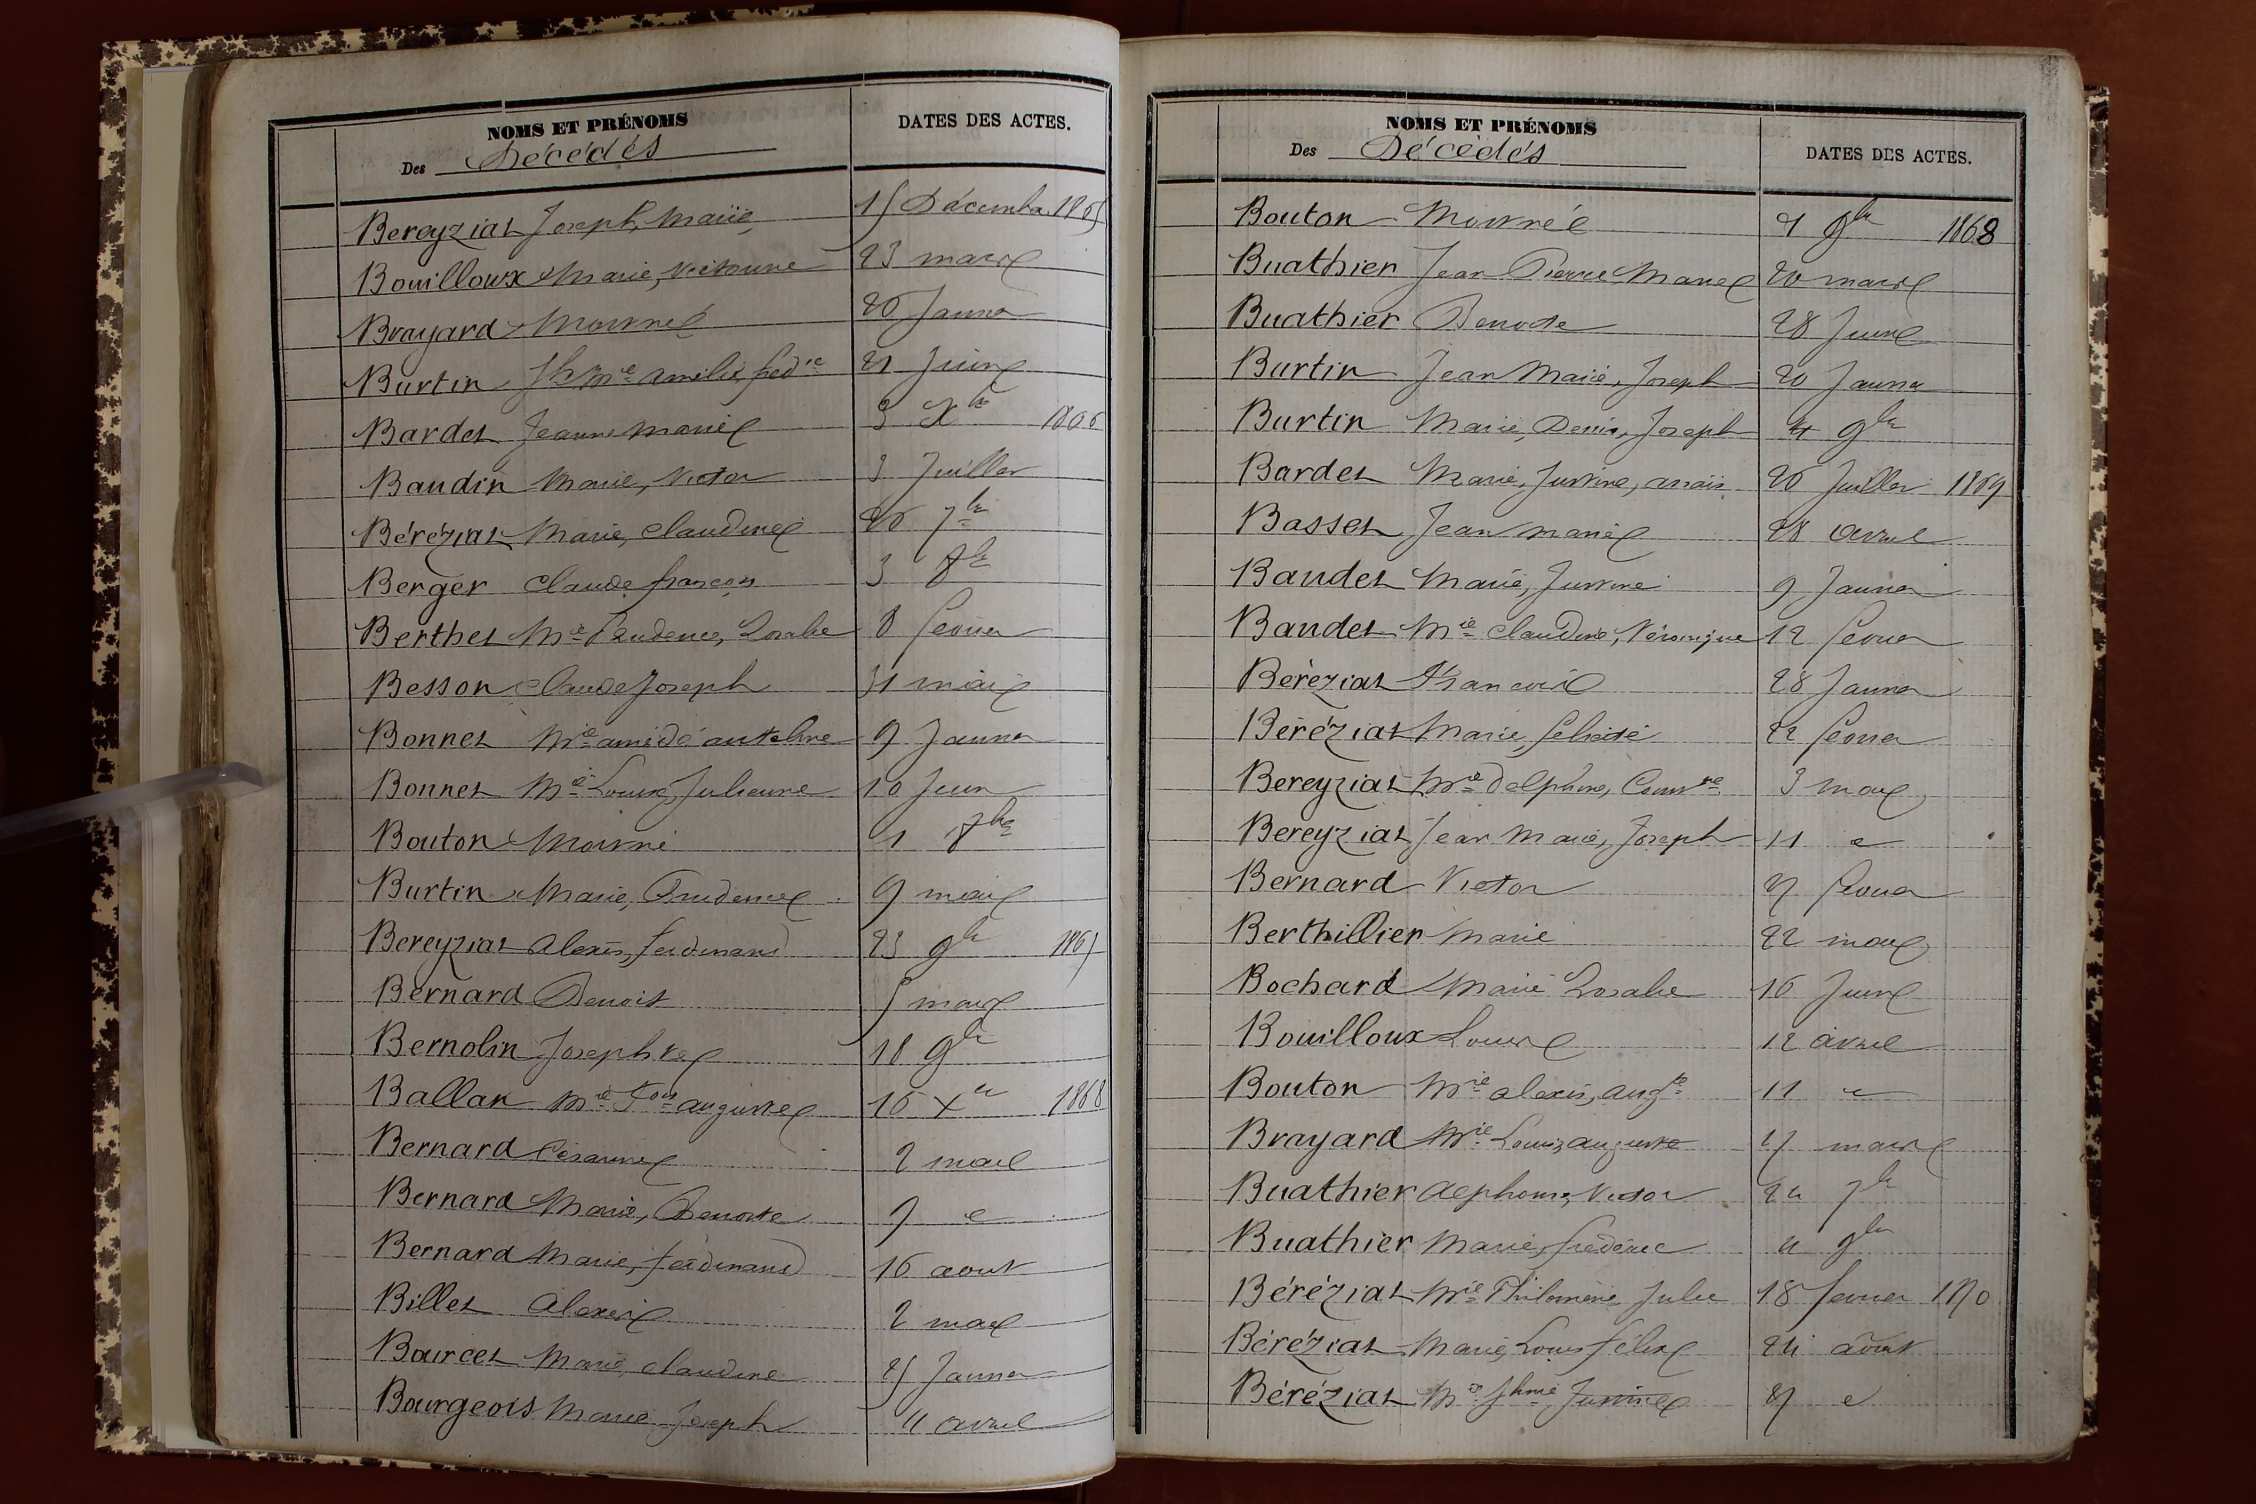 NOMS ET PRÉNOMS
DATES DES ACTES.
Des Décédés
Bereyziat Joseph, Marie 15 Décembre 1865
Bouilloux Marie, Victorine 23 mars
Brayard Mort né 26 Janvier
Burtin Jh Mie Amélie, fréd 21 Juin
Bardet Jeanne Marie 3 Xbre 1866
Baudin Marie, Victor 3 Juillet
Béréziat Marie, Claudine 26 7bre
Berger Claude françois 3 8bre
Berthet Mie Prudence, Rosalie 8 février
Besson Claude Joseph 31 mai
Bonnet Mie amédé anthelme 9 Janvier
Bonnet Mie Louise, Julienne 10 Juin
Bouton Mort né 1 8bre
Burtin Marie, Prudence 9 mai
Bereyziat Alexis, ferdinand 23 9bre 1867
Bernard Benoit 5 mars
Bernolin Joseph 18 9bre
Ballan Mie fois auguste 16 Xbre 1868
Bernard Césarine 2 mai
Bernard Marie, Benoite 7 "
Bernard Marie, ferdinand 16 aout
Billet Alexis 2 mai
Bourcet Marie, claudine 25 Janvier
Bourgeois Marie Joseph 4 avril
NOMS ET PRÉNOMS
DATES DES ACTES.
Des Décédés
Bouton Mort né 7 9bre 1868
Buathier Jean Pierre Marie 20 mars
Buathier Benoite 28 Juin
Burtin Jean Marie, Joseph 20 Janvier
Burtin Marie, Denis, Joseph 9bre
Bardet Marie, Justine, anaïs 26 Juillet 1869
Basset Jean marie 28 avril
Baudet Marie, Justine 9 Janvier
Baudet Mie Claudine, Véronique 12 février
Béréziat François 28 Janvier
Béréziat Marie, félicité 22 février
Bereyziat Mie Delphine, 3 mai
Bereyziat Jean Marie, Joseph 11 "
Bernard Victor 27 février
Berthillier Marie 22 mai
Bochard Marie Rosalie 16 Juin
Bouilloux Louise 12 avril
Bouton Mie alexis, augte 11 "
Brayard Mie Louis, auguste 17 mars
Buathier Alphonse, Victor 24 7bre
Buathier Marie, frédéric 4 9bre
Béréziat Mie Philomène Julie 18 fevrier 1870
Béréziat Marie, Louis félix 24 août
Béréziat Mie Jhine Justine 27 "